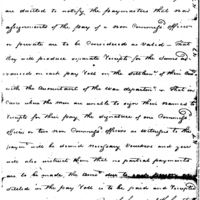 are directed to notify the paymasters that no
assignments of the pay of a non Commissd officer
or private are to be Considered as valid - that
they will produce separate receipts for the sums
on each pay roll in the settlement of their
with the accountant of the war department - that in
case when the men are unable to sign their names to
receipts for their pay, the signature of one Commissd
officer or two non Commissd officers as witnesses to the
pay will be deemed necessary vouchers and you
will also instruct them that no partial payments
are to be made, the sums due
settled in the pay roll is to be paid and receipted